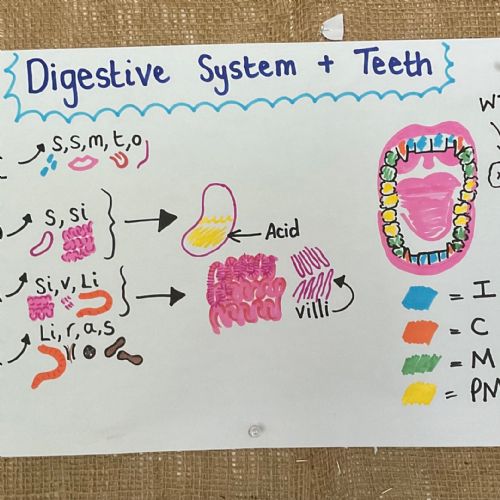 Digestive System + Teeth
S,S,m,t,o
S, Si
Acid
Si,v, Li
villi
Li,r,a,s
= I
= C
= M
= PM